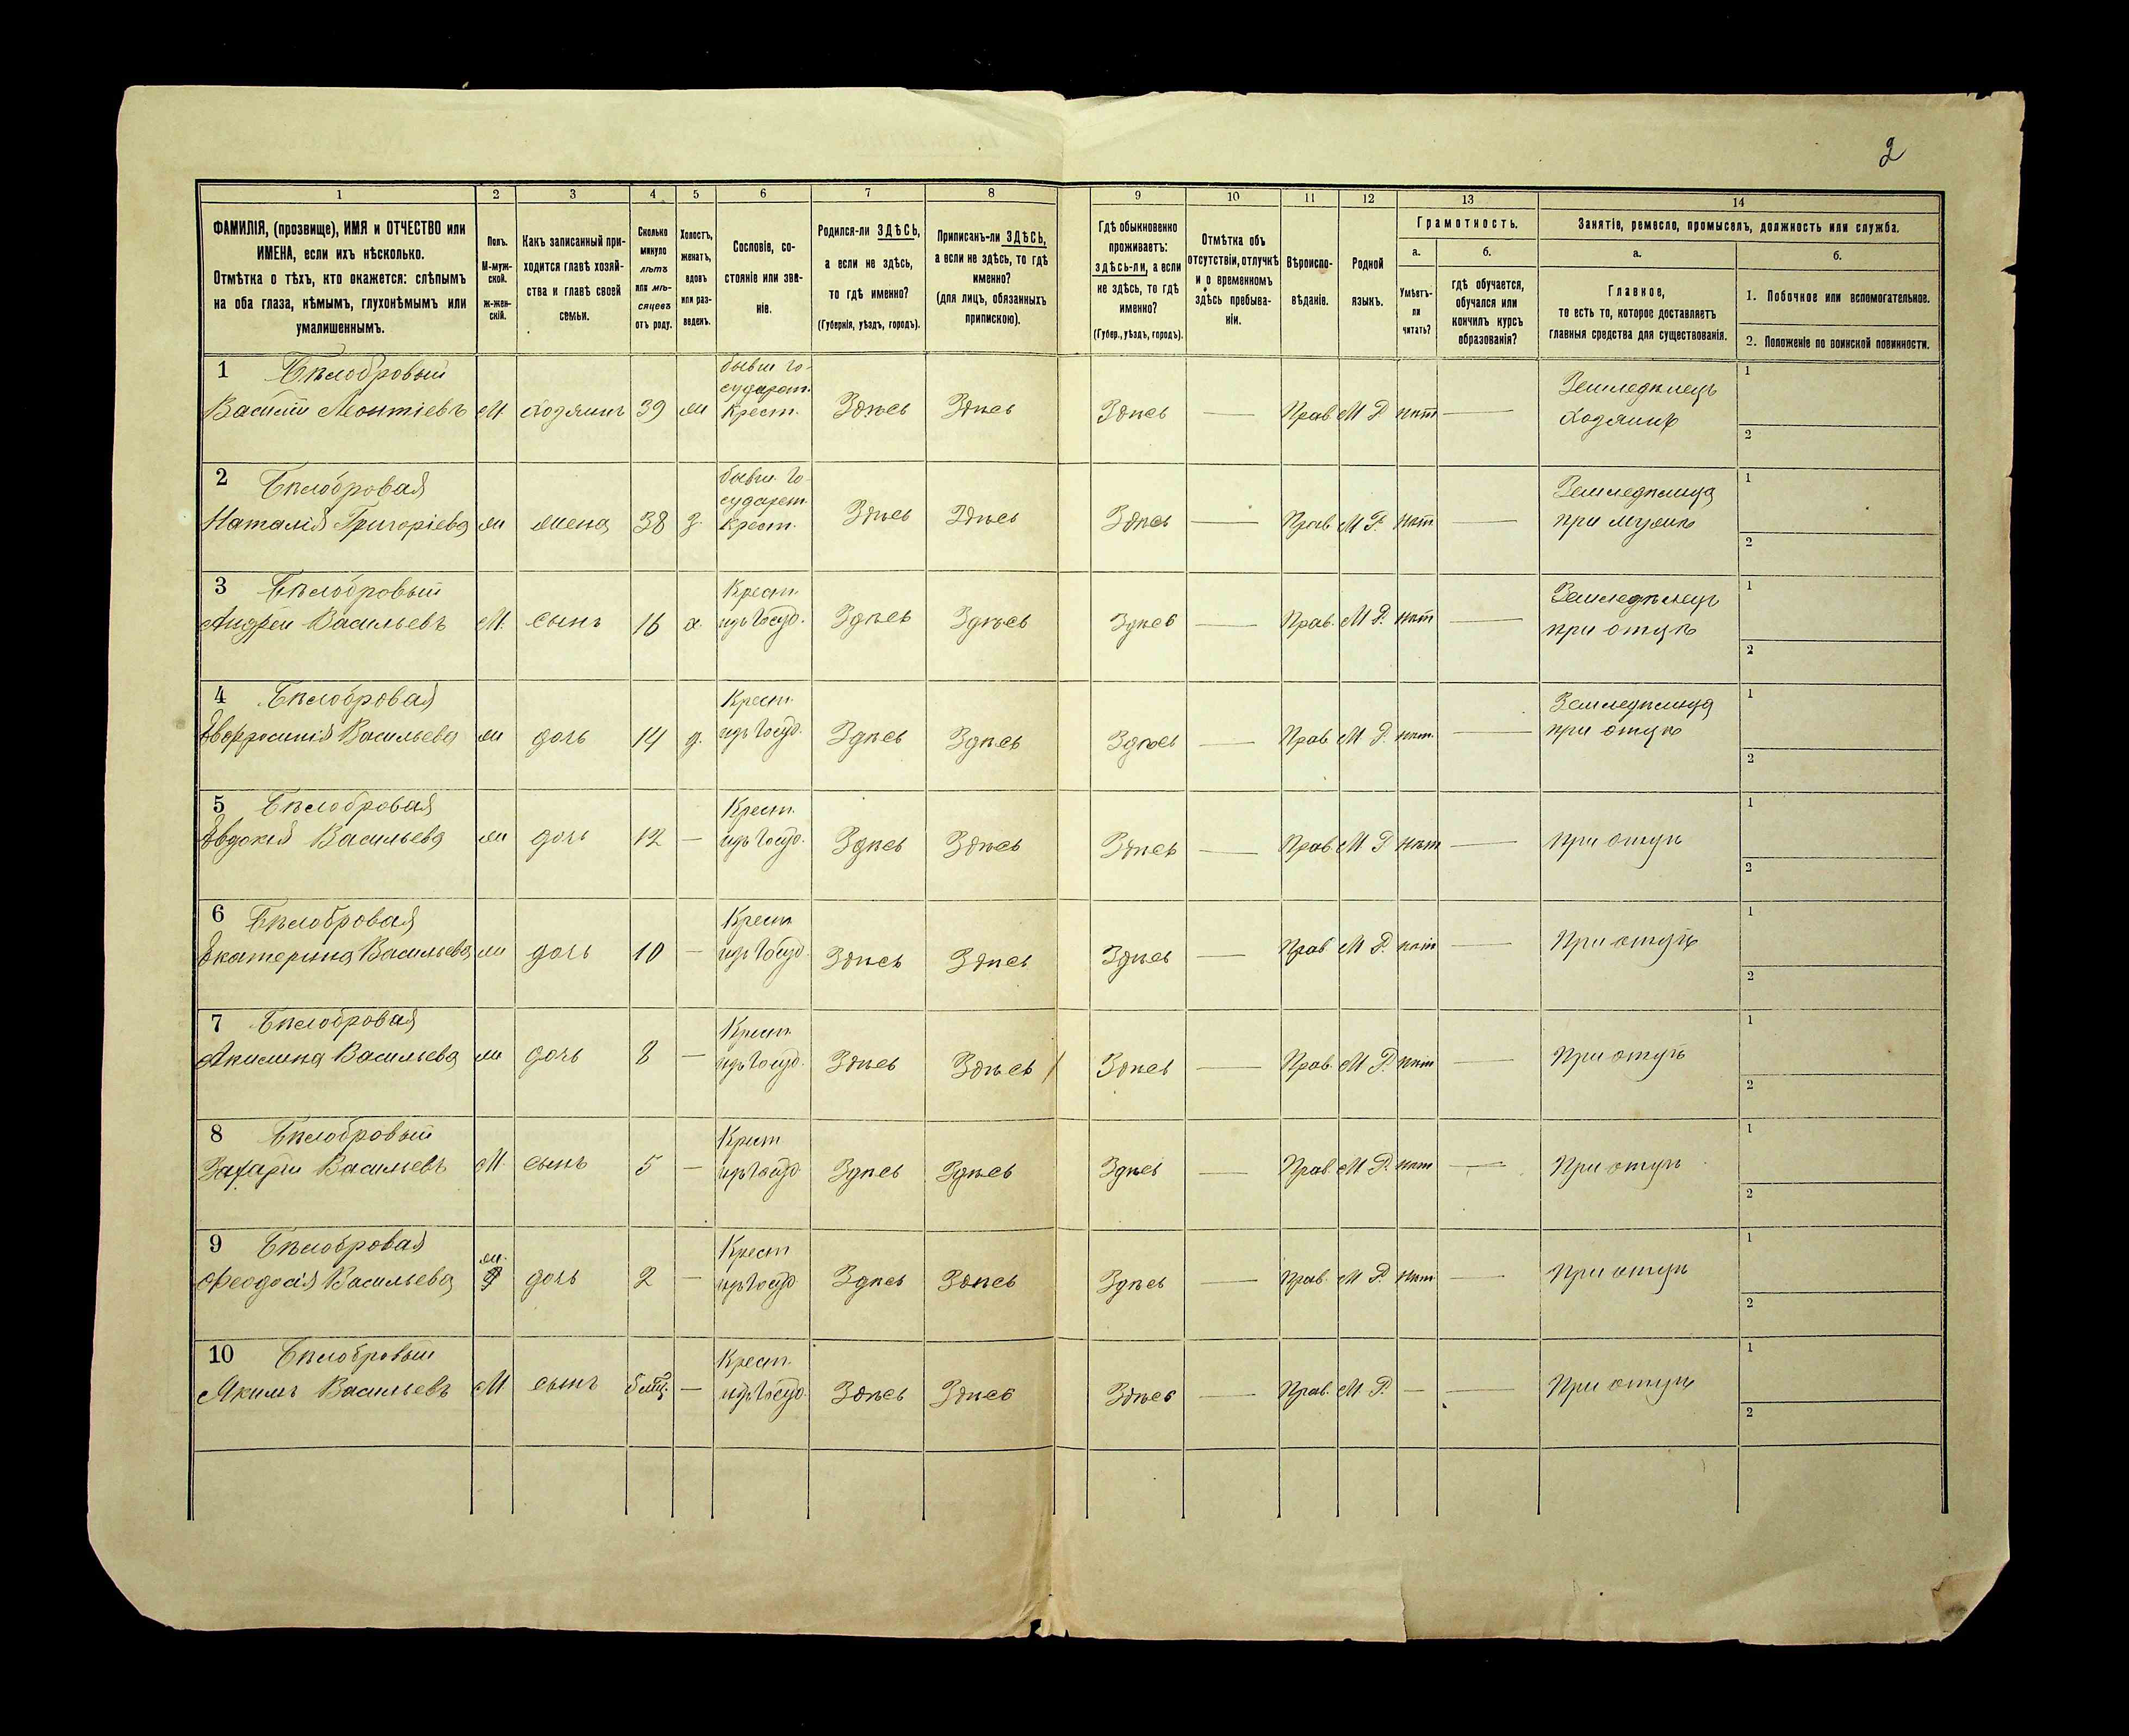 2
1 2 3 4 5 6 7 8 9 10 11 12 13 14
ФАМИЛІЯ, (прозвище), ИМЯ и ОТЧЕСТВО или
ИМЕНА, если ихъ нѣсколько.
Отмѣтка о тѣхъ, кто окажется: слѣпымъ
на оба глаза, нѣмымъ, глухонѣмымъ или
умалишеннымъ.
Полъ.
М-муж-
ской.
ж-жен-
скій.
Какъ записанный при-
ходится главѣ хозяй-
ства и главѣ своей
семьи.
Сколько
минуло
лѣтъ
или мѣ-
сяцевъ
отъ роду.
Холостъ,
женатъ,
вдовъ
или раз-
веденъ.
Сословіе, со-
стояніе или зва-
ніе.
Родился-ли ЗДѢСЬ,
а если не здѣсь,
то гдѣ именно?
(Губернія, уѣздъ, городъ).
Приписанъ-ли ЗДѢСЬ,
а если не здѣсь, то гдѣ
именно?
(для лицъ, обязанныхъ
припискою).
Гдѣ обыкновенно
проживаетъ:
здѣсь-ли, а если
не здѣсь, то гдѣ
именно?
(Губер., уѣздъ, городъ).
Отмѣтка объ
отсутствіи, отлучкѣ
и о временномъ
здѣсь пребыва-
ніи.
Вѣроиспо-
вѣданіе.
Родной
языкъ.
Грамотность.
а.
Умѣетъ-
ли
читать?
б.
гдѣ обучается,
обучался или
кончилъ курсъ
образованія?
Занятіе, ремесло, промыселъ, должность или служба.
а.
Главное,
то есть то, которое доставляетъ
главныя средства для существованія.
б.
1. Побочное или вспомогательное.
2. Положеніе по воинской повинности.
1 Бѣлобровый бывш. го- Земледѣлецъ 1
сударст.
Василій Леонтіевъ М хозяинъ 39 ж крест. Здѣсь Здѣсь Здѣсь — Прав. М Р. нѣт — хозяинъ
2
2 Бѣлобровая бывш. го- Земледѣлица 1
сударст.
Наталія Григоріева ж жена 38 з. крест. Здѣсь Здѣсь Здѣсь — Прав. М Р. нѣт — при мужѣ
2
3 Бѣлобровый Крест. Земледѣлецъ 1
Андрей Васильевъ М. сынъ 16 х. изъ Госуд. Здѣсь Здѣсь Здѣсь — Прав. М Р. нѣт — при отцѣ
2
4 Бѣлобровая Крест. Земледѣлица 1
Евфросинія Васильева ж дочь 14 д. изъ Госуд. Здѣсь Здѣсь Здѣсь — Прав. М Р. нѣт. — при отцѣ
2
5 Бѣлобровая Крест. 1
Евдокія Васильева ж дочь 12 — изъ Госуд. Здѣсь Здѣсь Здѣсь — Прав. М Р нѣт — при отцѣ
2
6 Бѣлобровая Крест. 1
Екатерина Васильева ж дочь 10 — изъ Госуд. Здѣсь Здѣсь Здѣсь — Прав М Р. нѣт — При отцѣ
2
7 Бѣлобровая Крест. 1
Акилина Васильева ж дочь 8 — изъ Госуд. Здѣсь Здѣсь Здѣсь — Прав. М Р. нѣт — При отцѣ
2
8 Бѣлобровый Крест 1
Захарій Васильевъ М. сынъ 5 — изъ Госуд Здѣсь Здѣсь Здѣсь — Прав. М Р. нѣт — При отцѣ
2
9 Бѣлобровая ж. Крест 1
Феодосія Васильева дочь 2 — изъ Госуд Здѣсь Здѣсь Здѣсь — Прав. М Р. нѣт. — При отцѣ
2
10 Бѣлобровый Крест. 1
Якимъ Васильевъ М сынъ — изъ Госуд. Здѣсь Здѣсь Здѣсь — Прав. М. Р. — — При отцѣ
2